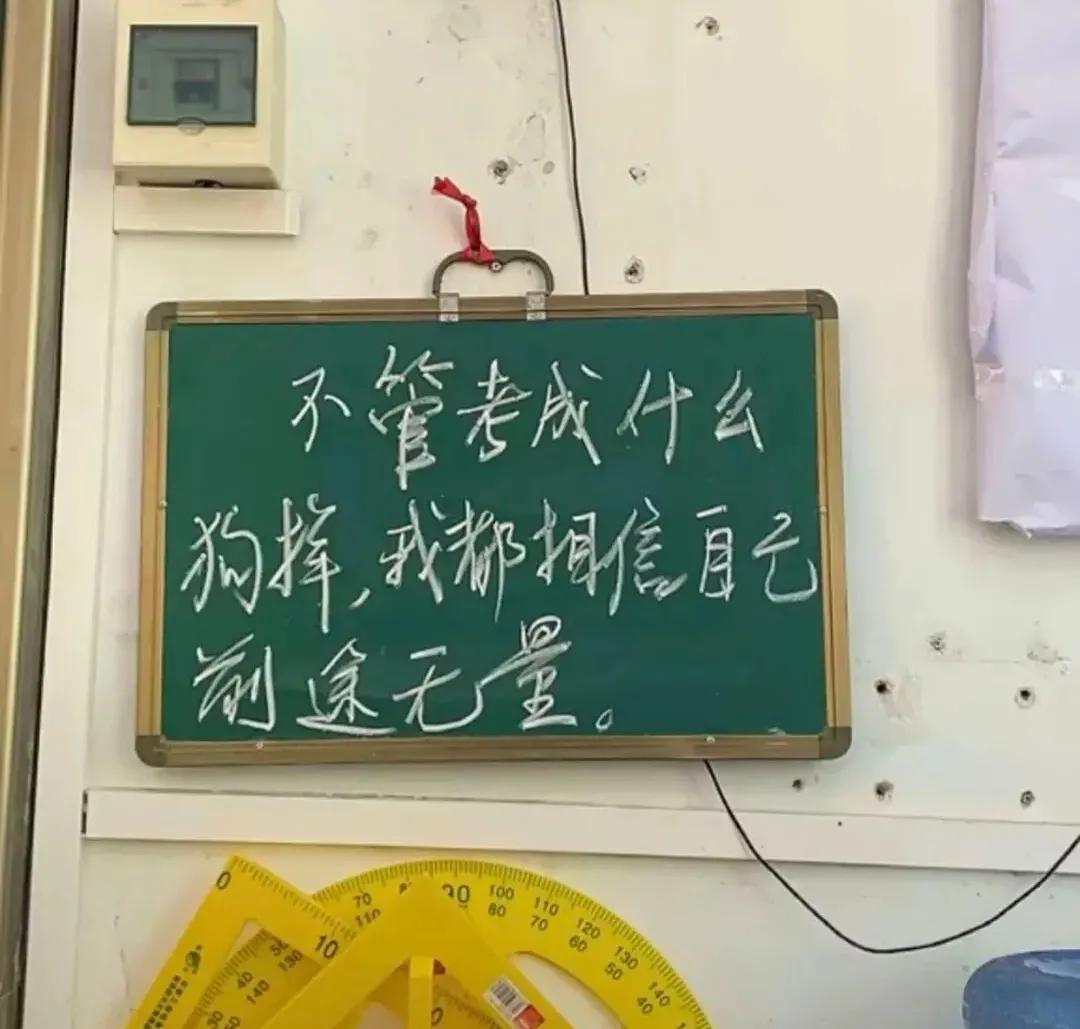 不管考成什么
狗样,我都相信自己
前途无量。
0
10
70
110
90
100
80
110
70
120
60
130
50
140
40
40
140
50
130
30
0